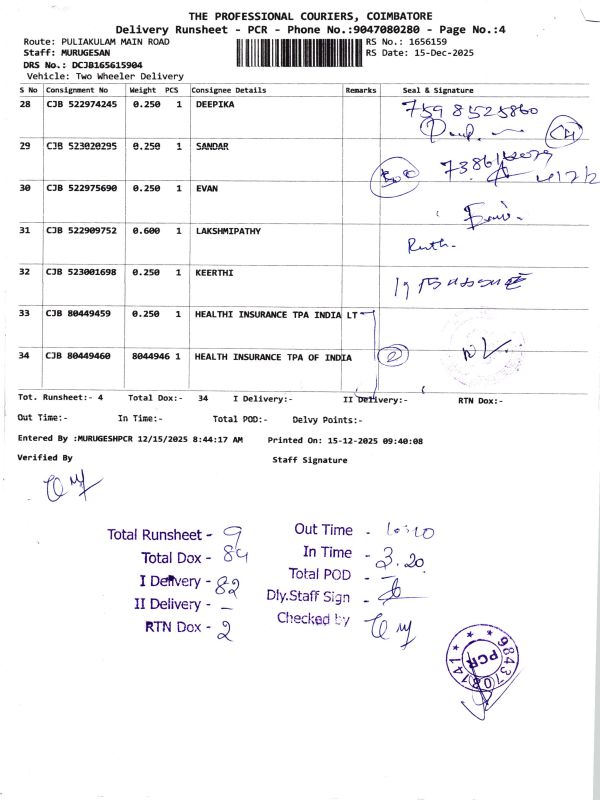 THE PROFESSIONAL COURIERS, COIMBATORE
Delivery Runsheet - PCR - Phone No.:9047080280 - Page No.:4
Route: PULIAKULAM MAIN ROAD RS No.: 1656159
Staff: MURUGESAN RS Date: 15-Dec-2025
DRS No.: DCJB165615904
Vehicle: Two Wheeler Delivery
S No Consignment No Weight PCS Consignee Details Remarks Seal & Signature
28 CJB 522974245 0.250 1 DEEPIKA 7598525860
29 CJB 523020295 0.250 1 SANDAR
30 CJB 522975690 0.250 1 EVAN
31 CJB 522909752 0.600 1 LAKSHMIPATHY Ruth.
32 CJB 523001698 0.250 1 KEERTHI
33 CJB 80449459 0.250 1 HEALTHI INSURANCE TPA INDIA LT
34 CJB 80449460 8044946 1 HEALTH INSURANCE TPA OF INDIA 2
Tot. Runsheet:- 4 Total Dox:- 34 I Delivery:- II Delivery:- RTN Dox:-
Out Time:- In Time:- Total POD:- Delvy Points:-
Entered By :MURUGESHPCR 12/15/2025 8:44:17 AM Printed On: 15-12-2025 09:40:08
Verified By Staff Signature
Total Runsheet - 9 Out Time - 10:10
Total Dox - 84 In Time - 3.20
I Delivery - 82 Total POD -
II Delivery - - Dly.Staff Sign -
RTN Dox - 2 Checked by
PCR